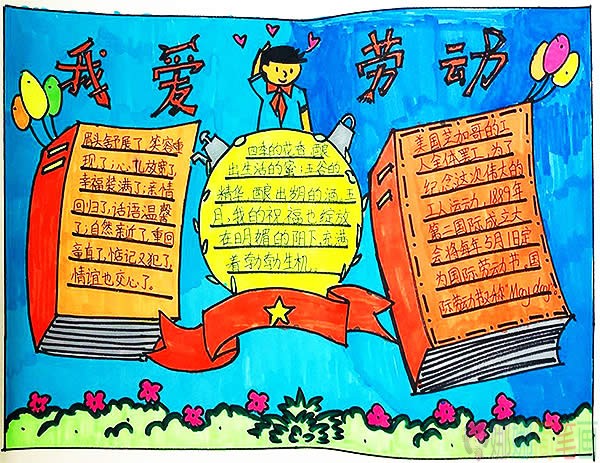 我爱劳动
眉头舒展了,笑容重
现了;心扎放宽了,
幸福装满了;亲情
回归了,话语温馨
了;自然亲近了,重回
童真了;惦记又犯了,
情谊也交心了。
四季的花香,酿
出生活的蜜;五谷的
精华,酿出期的酒,五
月,我的祝福也绽放
在明媚的阳下,充满
着勃勃生机。
美国芝加哥的工
人全体罢工,为了
纪念这次伟大的
工人运动,1889年
第二国际成立大
会将每年5月1日定
为国际劳动节,国
际劳动节又称May day。